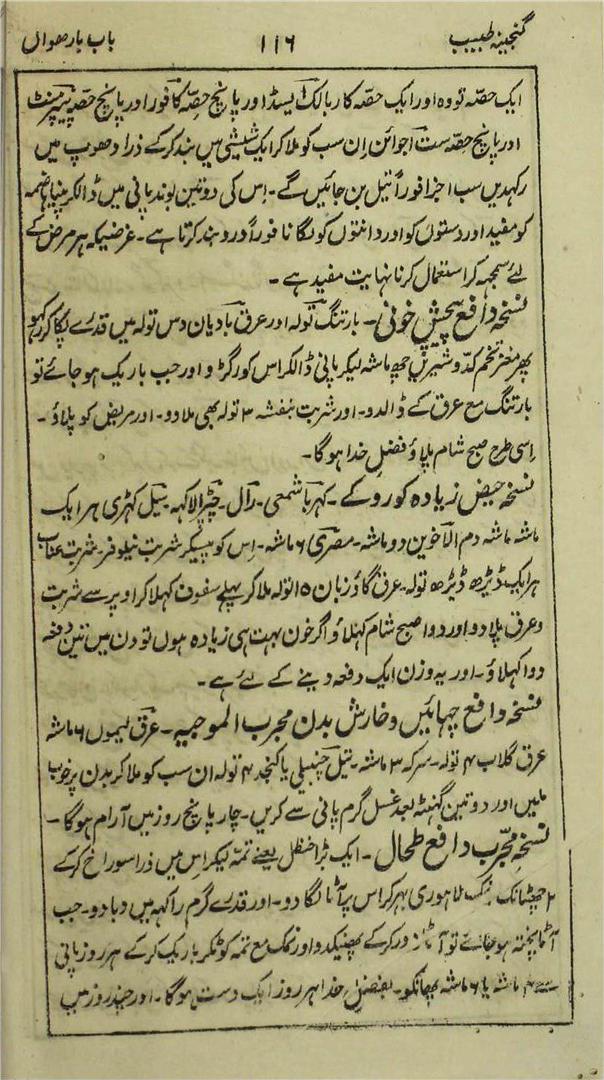 گنجینہ طبیب
۱۱۶
باب بارھواں
ایک حصّہ تو وہ اور ایک حصّہ کاربالک ایسڈ اور پانچ حصّہ کافور اور پانچ حصّہ پیپرمنٹ
اور پانچ حصّہ ست اجوائن اِن سب کو ملا کر ایک شیشی میں بند کرکے ذرا دھوپ میں
رکہدیں سب اجزا فوراً تیل بن جائیں گے۔ اِس کی دو تین بوند پانی میں ڈالکر پینا ہاضمہ
کو مفید اور دستوں کو اور دانتوں کو لگانا فوراً درد بند کرتا ہے۔ غرضیکہ ہر مرض کے
لئے سمجہہ کر استعمال کرنا نہایت مفید ہے۔
نسخہ دافع پیچش خونی۔ بارتنگ تولہ اور عرق بادیان دس تولہ میں قدرے پکا کر رکہو
پھر مغز تخم کدو شیریں چھ ماشہ لیکر پانی ڈالکر اس کو رگڑو اور جب باریک ہو جائے تو
بارتنگ مع عرق کے ڈالدو۔ اور شربت بنفشہ ۳ تولہ بھی ملا دو۔ اور مریض کو پلاؤ۔
اِسی طرح صبح شام پلاؤ فضل خدا ہوگا۔
نسخہ حیض زیادہ کو روکے۔ کہربا شمعی۔ رال۔ لاکہہ۔ کہڑی ہر ایک
ماشہ ماشہ دم الاخوین دو ماشہ۔ مصری ۶ ماشہ۔ اِس کو پیسکر شربت نیلوفر۔ شربت عناب
ہر ایک ڈیڑھ ڈیڑھ تولہ عرق گاؤزبان ۱۵ تولہ ملا کر پہلے سفوف کہلا کر اوپر سے شربت
و عرق پلا دو اور دوا صبح شام کہلاؤ اگر خون بہت ہی زیادہ ہوں تو دن میں تین دفعہ
دوا کہلاؤ۔ اور یہ وزن ایک دفعہ دینے کے لئے ہے۔
نسخہ دافع چہائیں و خارش بدن مجرب الموجیہ۔ عرق لیموں ۶ ماشہ
عرق گلاب ۴ تولہ۔ سرکہ ۳ ماشہ۔ تیل چنبیلی یا کنجد ۴ تولہ ان سب کو ملا کر بدن پر خوب
ملیں اور دو تین گھنٹہ بعد غسل گرم پانی سے کریں۔ چار پانچ روز میں آرام ہوگا۔
نسخہ مجرّب دافع طحال۔ ایک بڑا حنظل یعنے تمہ لیکر اِس میں ذرا سوراخ کرکے
۲ چھٹانک نمک لاہوری بہر کر اس پر آٹا لگا دو۔ اور قدرے گرم راکہہ میں دبا دو۔ جب
آٹا پختہ ہو جائے تو آٹا دور کرکے پھینکدو اور نمک مع تمہ کو ٹکر باریک کرکے ہر روز پانی
سے ۴ ماشہ یا ۶ ماشہ پھانکو۔ بفضلِ خدا ہر روز ایک دست ہوگا۔ اور چند روز میں